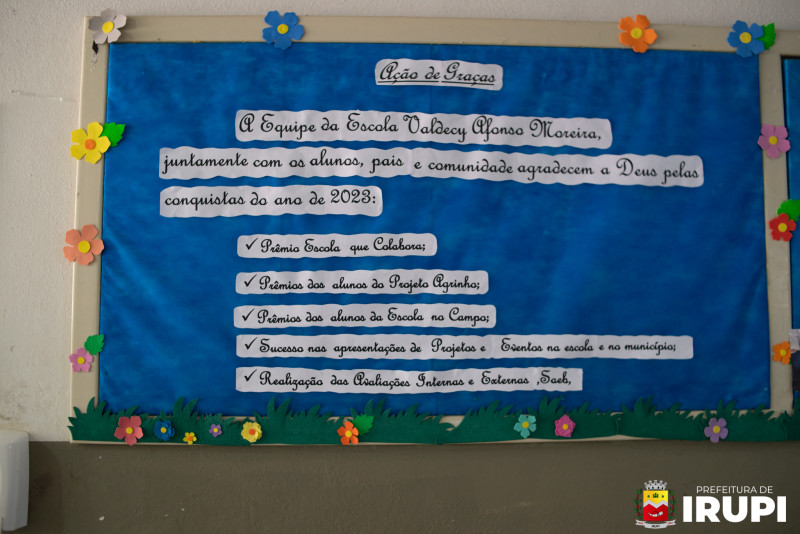 Ação de Graças
A Equipe da Escola Valdecy Afonso Moreira,
juntamente com os alunos, pais e comunidade agradecem a Deus pelas
conquistas do ano de 2023:
✓ Prêmio Escola que Colabora;
✓ Prêmios dos alunos do Projeto Agrinho;
✓ Prêmios dos alunos da Escola no Campo;
✓ Sucesso nas apresentações de Projetos e Eventos na escola e no município;
✓ Realização das Avaliações Internas e Externas ,Saeb,
PREFEITURA DE
IRUPI